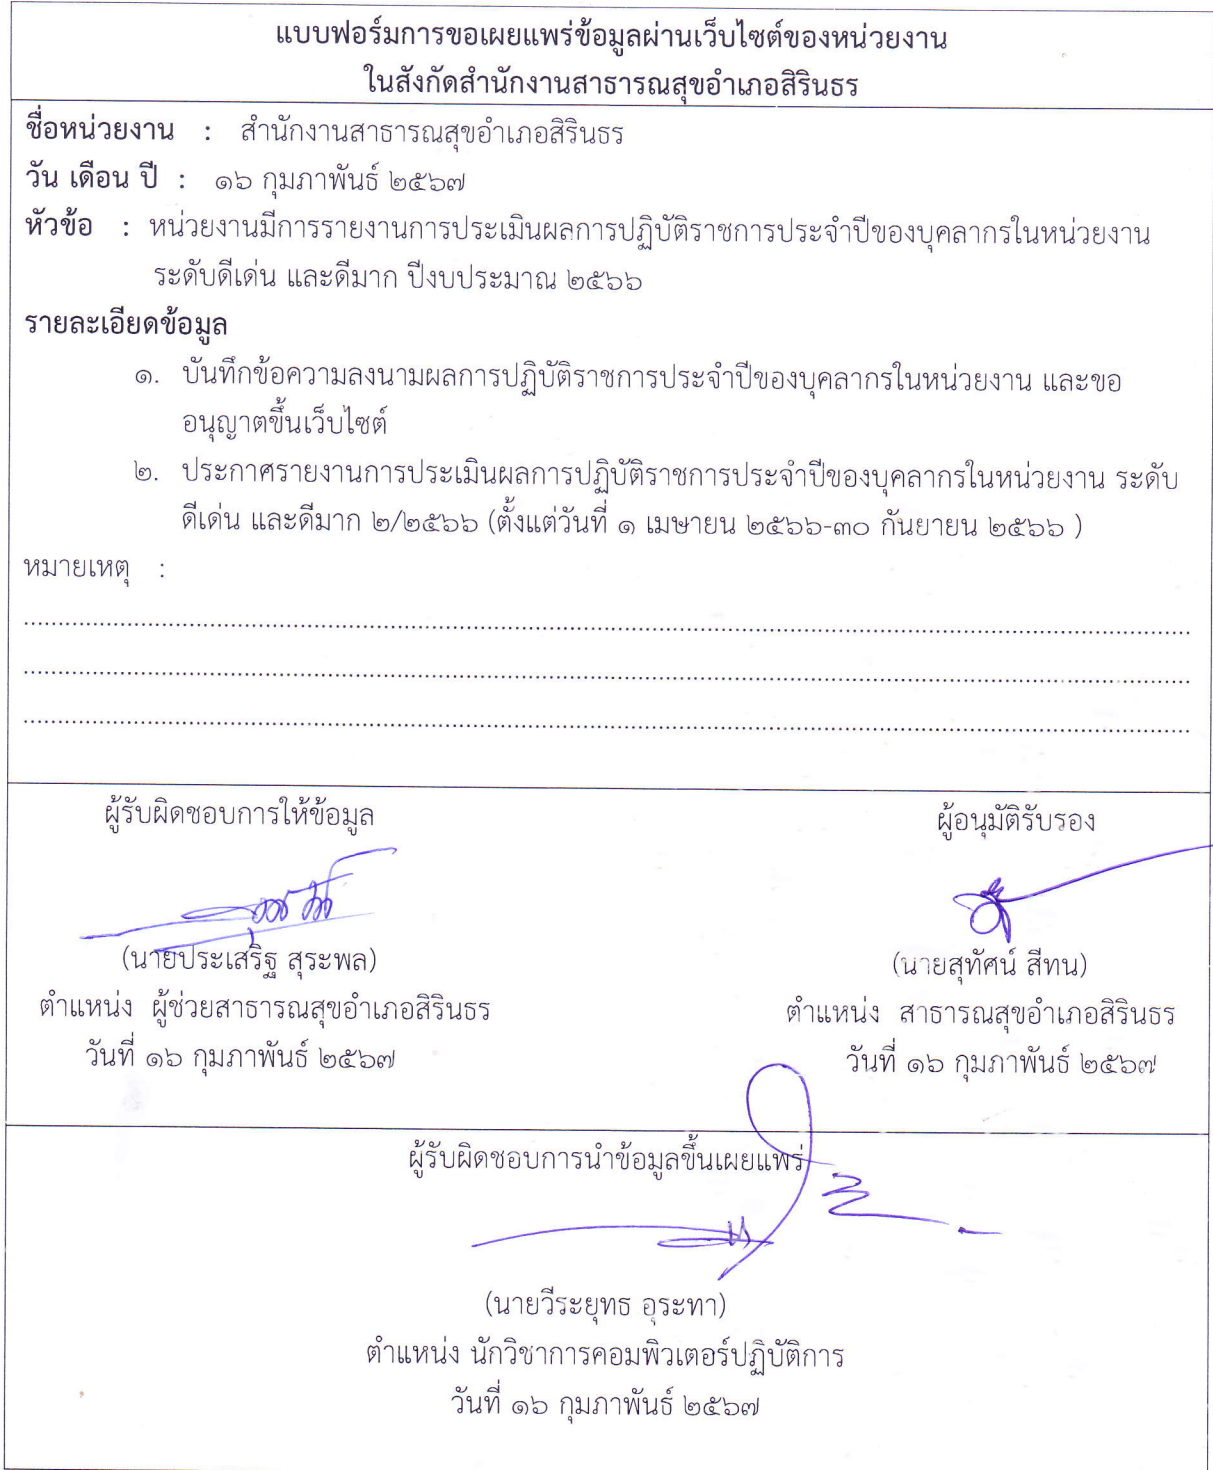 แบบฟอร์มการขอเผยแพร่ข้อมูลผ่านเว็บไซต์ของหน่วยงาน
ในสังกัดสำนักงานสาธารณสุขอำเภอสิรินธร
ชื่อหน่วยงาน : สำนักงานสาธารณสุขอำเภอสิรินธร
วัน เดือน ปี : ๑๖ กุมภาพันธ์ ๒๕๖๗
หัวข้อ : หน่วยงานมีการรายงานการประเมินผลการปฏิบัติราชการประจำปีของบุคลากรในหน่วยงาน
ระดับดีเด่น และดีมาก ปีงบประมาณ ๒๕๖๖
รายละเอียดข้อมูล
๑. บันทึกข้อความลงนามผลการปฏิบัติราชการประจำปีของบุคลากรในหน่วยงาน และขอ
อนุญาตขึ้นเว็บไซต์
๒. ประกาศรายงานการประเมินผลการปฏิบัติราชการประจำปีของบุคลากรในหน่วยงาน ระดับ
ดีเด่น และดีมาก ๒/๒๕๖๖ (ตั้งแต่วันที่ ๑ เมษายน ๒๕๖๖-๓๐ กันยายน ๒๕๖๖ )
หมายเหตุ :
ผู้รับผิดชอบการให้ข้อมูล
(นายประเสริฐ สุระพล)
ตำแหน่ง ผู้ช่วยสาธารณสุขอำเภอสิรินธร
วันที่ ๑๖ กุมภาพันธ์ ๒๕๖๗
ผู้อนุมัติรับรอง
(นายสุทัศน์ สีทน)
ตำแหน่ง สาธารณสุขอำเภอสิรินธร
วันที่ ๑๖ กุมภาพันธ์ ๒๕๖๗
ผู้รับผิดชอบการนำข้อมูลขึ้นเผยแพร่
(นายวีระยุทธ อุระทา)
ตำแหน่ง นักวิชาการคอมพิวเตอร์ปฏิบัติการ
วันที่ ๑๖ กุมภาพันธ์ ๒๕๖๗